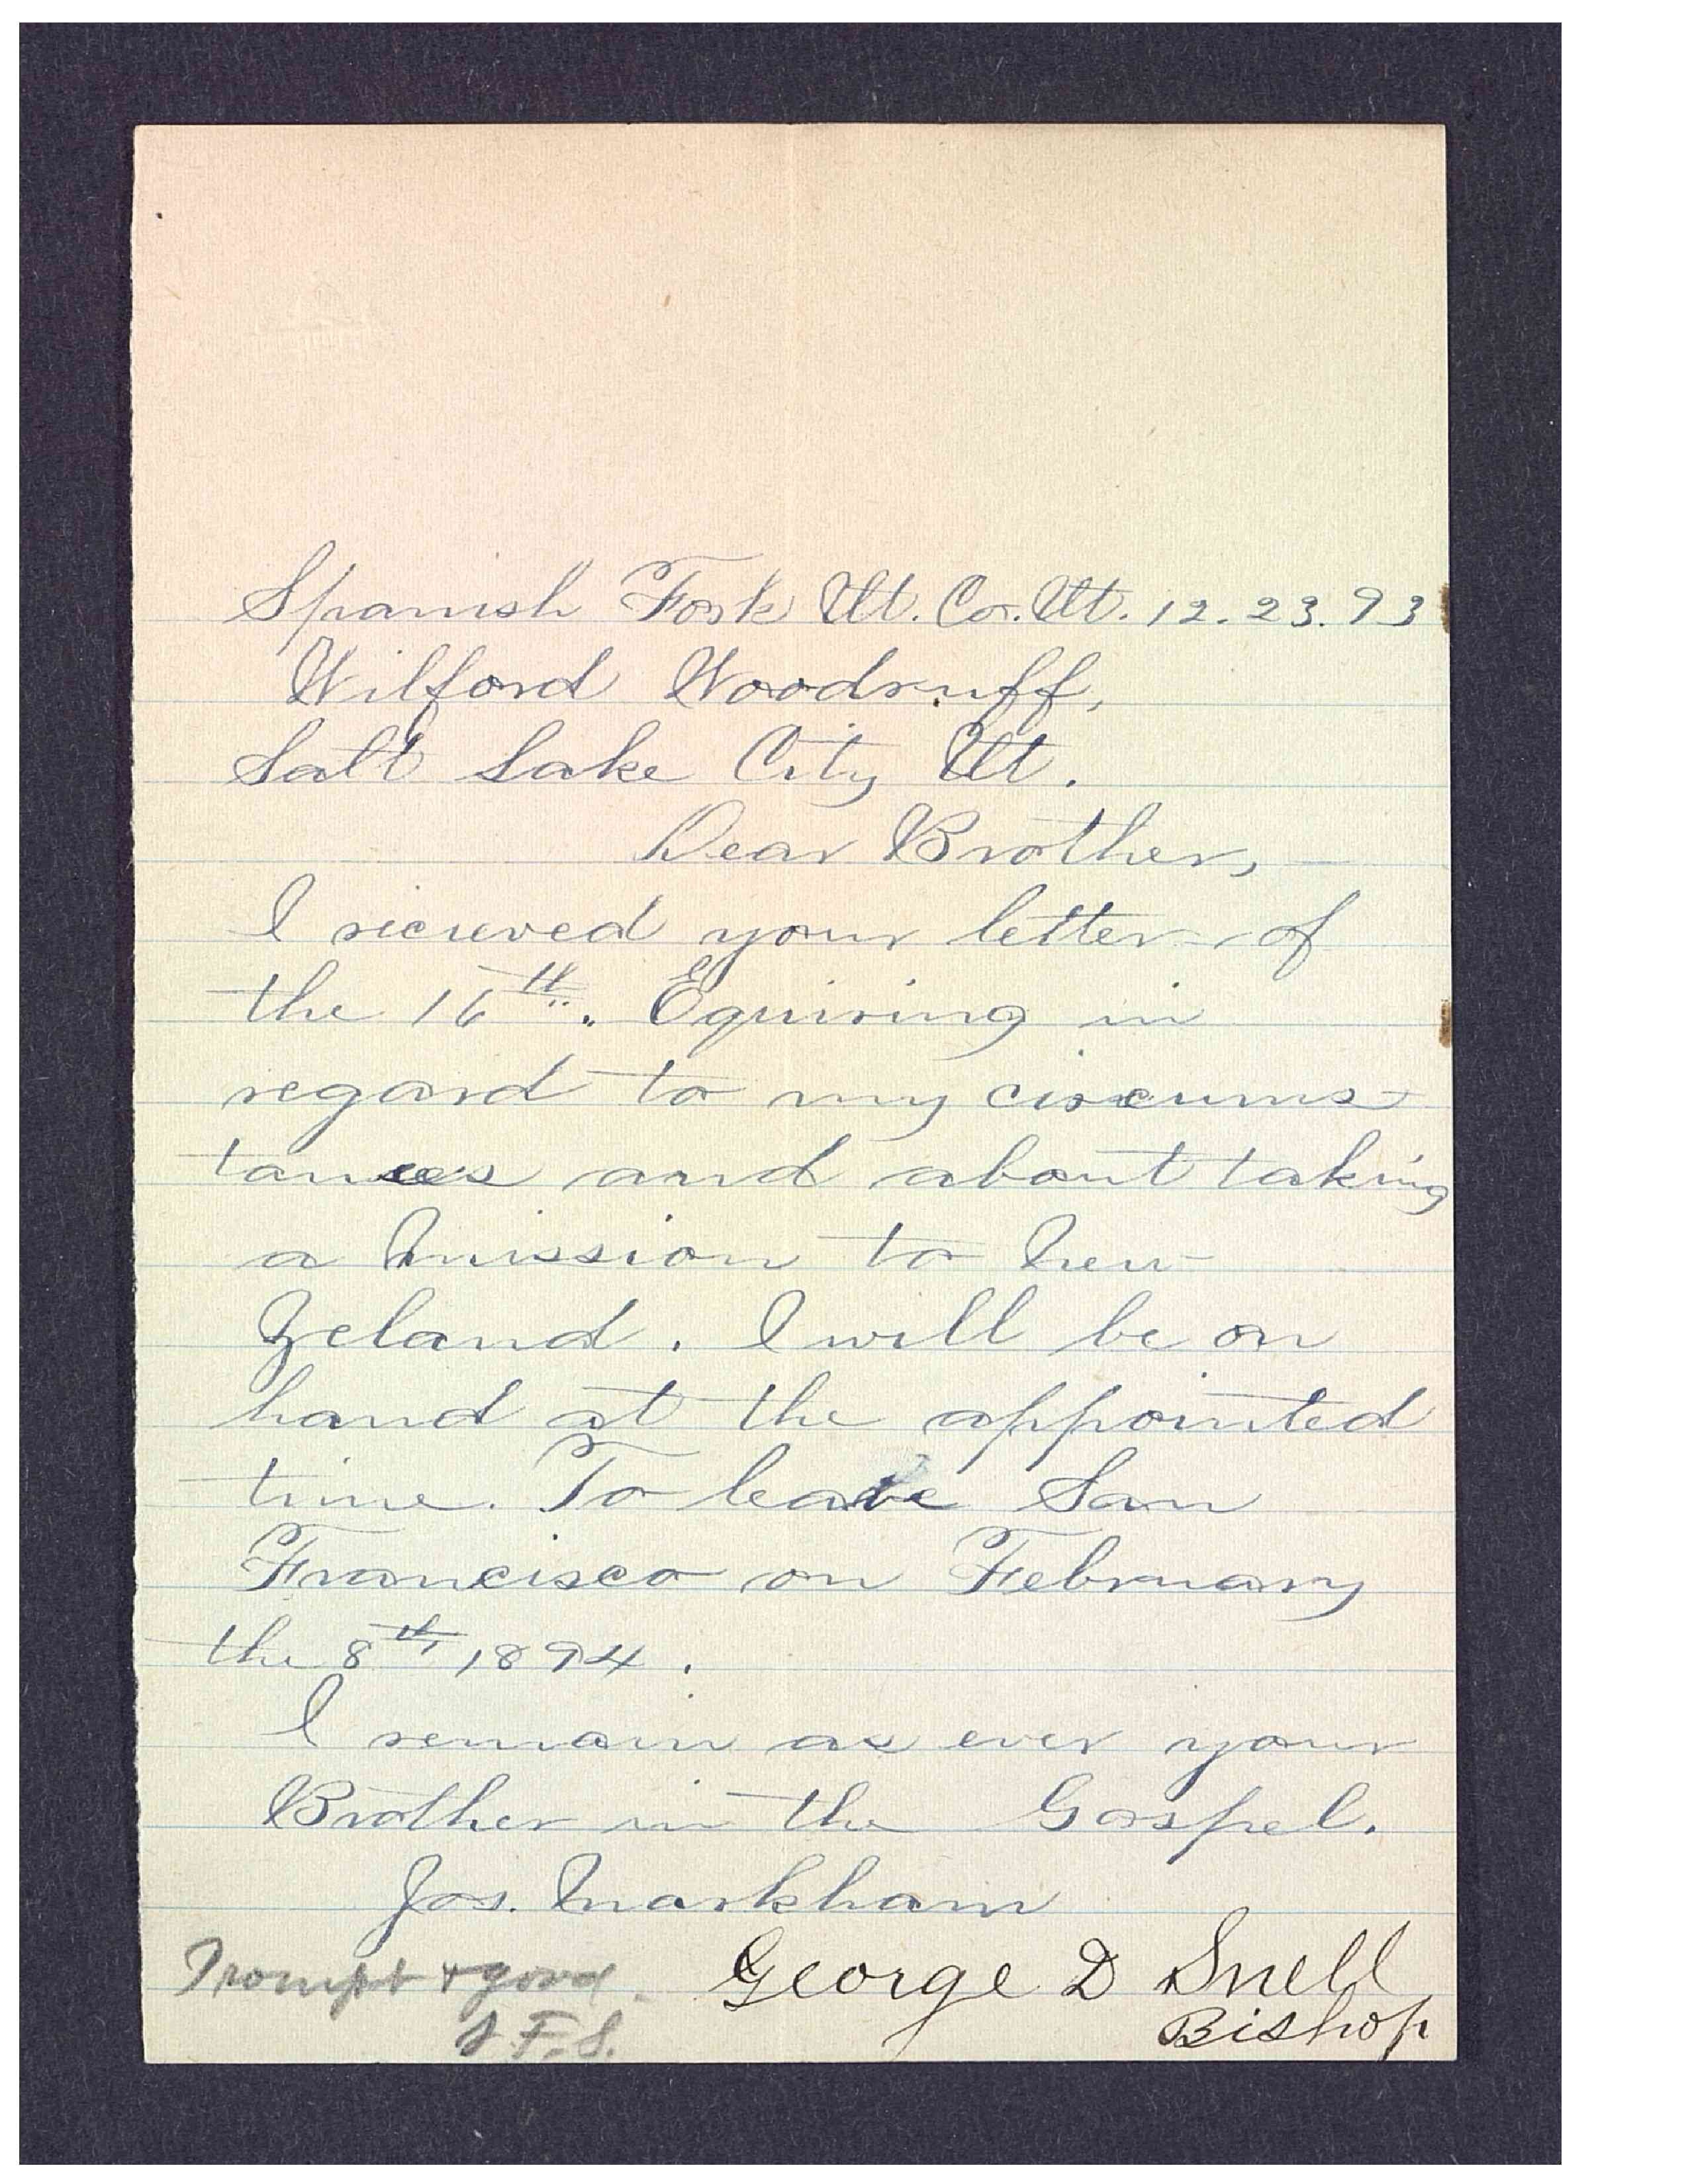 Spanish Fork Ut. Co. Ut. 12. 23. 93
Wilford Woodruff,
Salt Lake City Ut.
Dear Brother,
I recieved your letter of
the 16th. Equiring in
regard to my circums-
tances and about taking
a Mission to New
Zeland. I will be on
hand at the appointed
time. To leave San
Francisco on February
the 8th, 1894.
I remain as ever your
Brother in the Gospel.
Jos. Markham
George D Snell
Bishop
Prompt & good.
J. F. S.